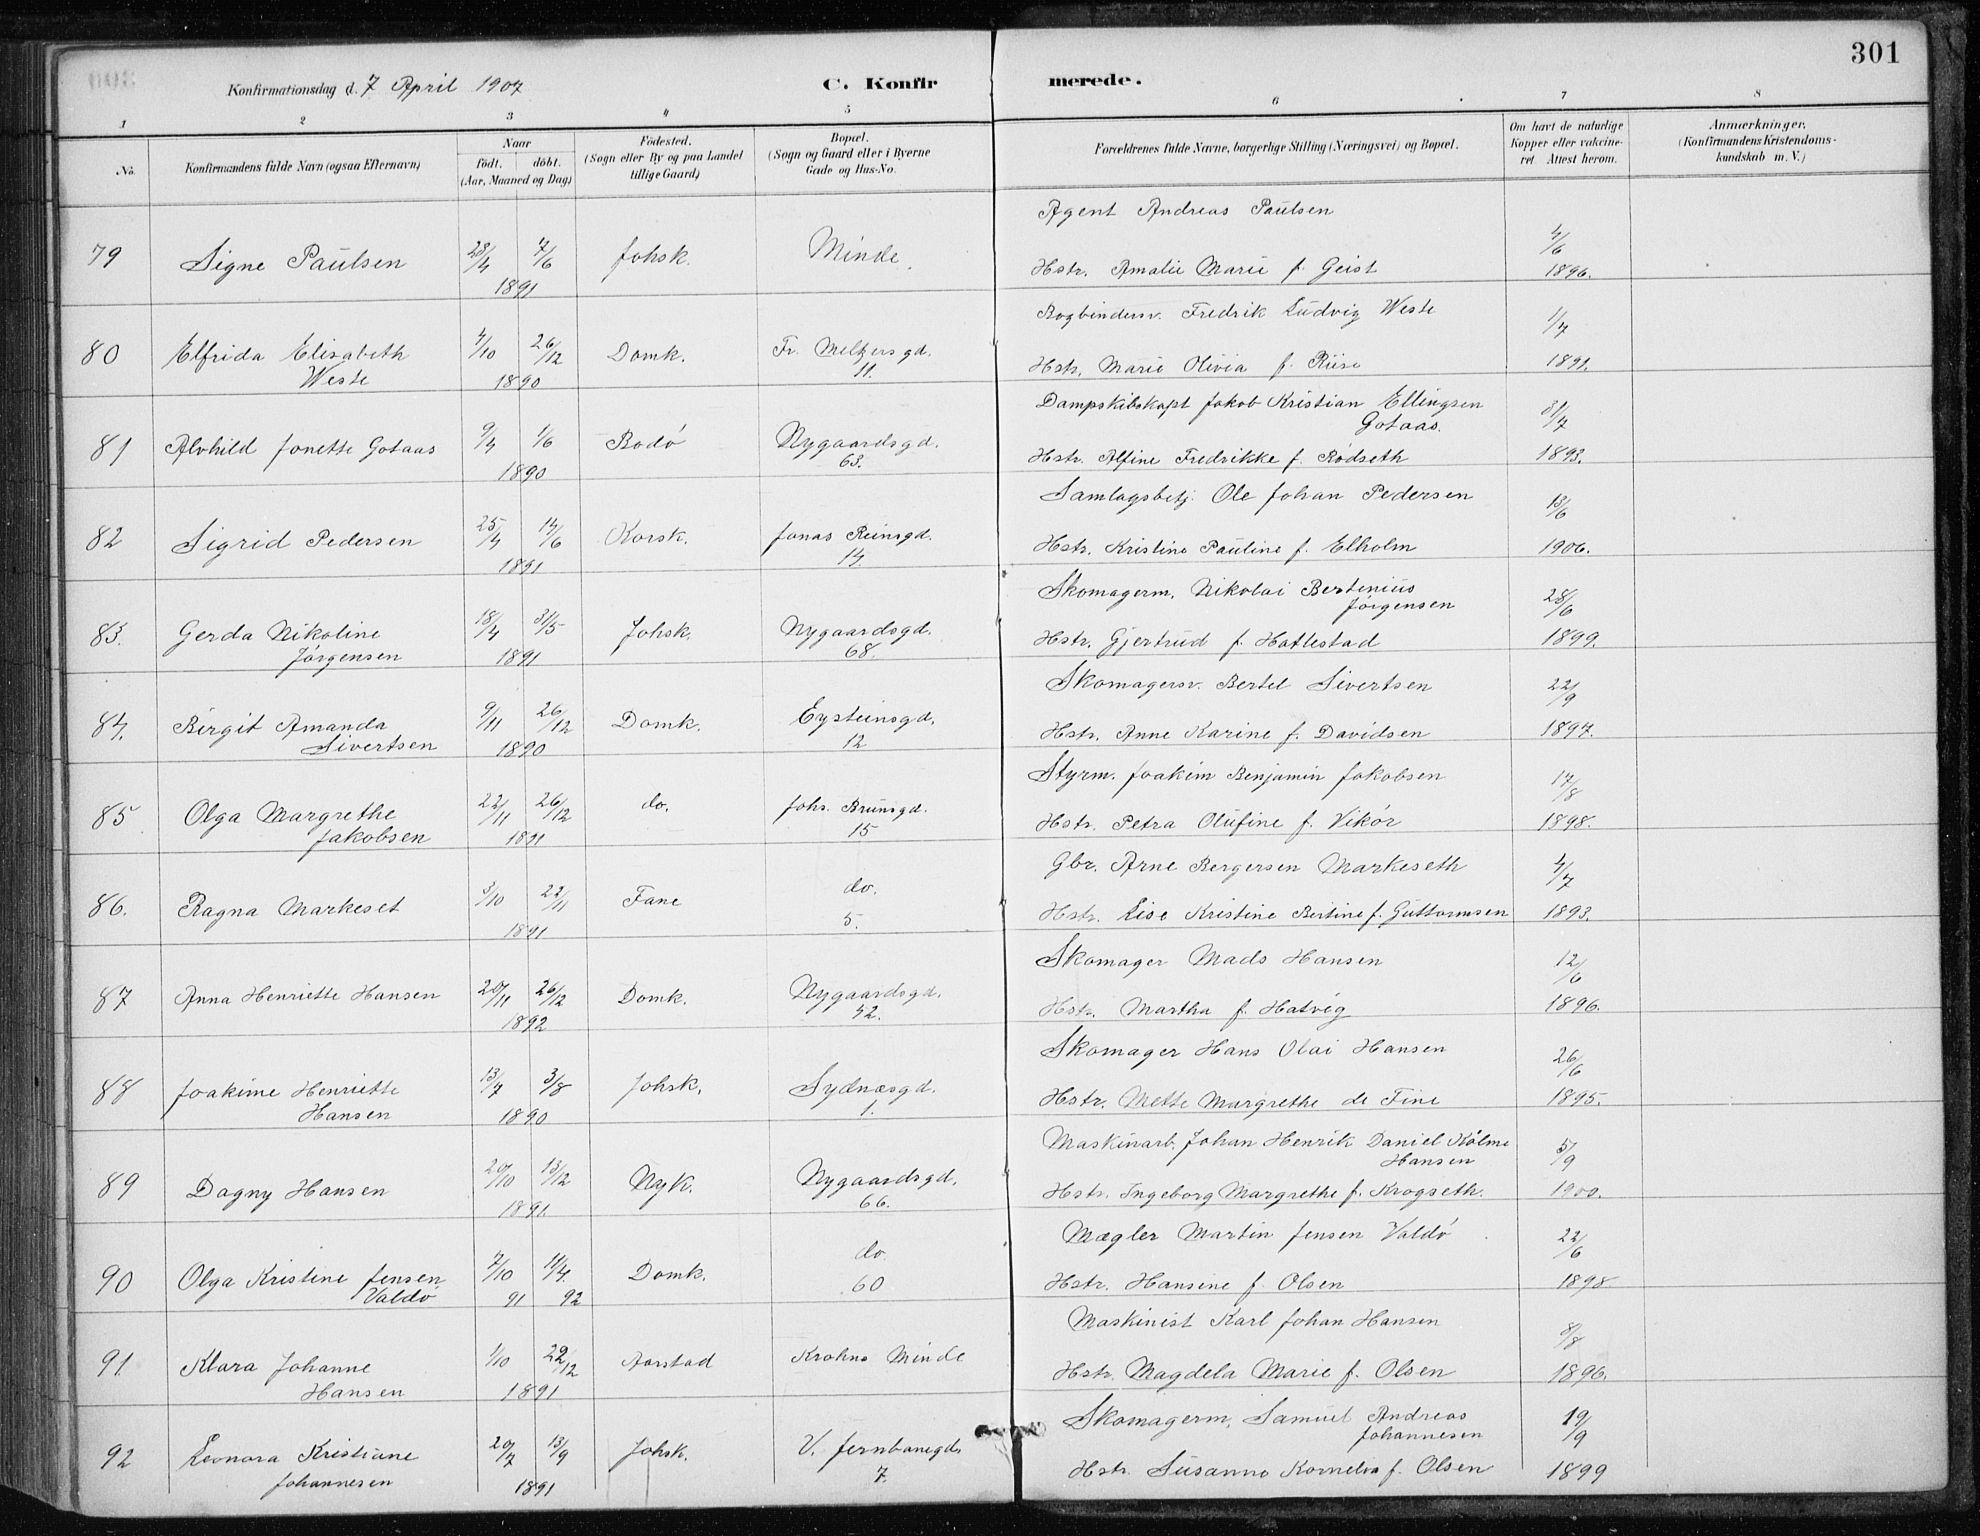 301
Konfirmationsdag d. 7 April 1907
C. Konfirmerede.
1 2 3 4 5 6 7 8
No.
Konfirmandens fulde Navn (ogsaa Efternavn)
Naar
födt. döbt.
(Aar, Maaned og Dag)
Födested.
(Sogn eller By og paa Landet
tillige Gaard)
Bopæl.
(Sogn og Gaard eller i Byerne
Gade og Hus-No.
Forældrenes fulde Navne, borgerlige Stilling (Næringsvei) og Bopæl.
Om havt de naturlige
Kopper eller vakcineret. Attest herom.
Anmærkninger.
(Konfirmandens Kristendomskundskab m. V.)
Agent Andreas Paulsen
79 Signe Paulsen 28/4 7/6 Johsk. Minde 4/6
1891 Hstr. Amalie Marie f. Geist 1896.
Bogbindersv. Fredrik Ludvig Weste
80 Elfrida Elisabeth 4/10 26/12 Domk. Fr. Meltzersgd. 1/7
Weste 1890 11. Hstr. Marie Olivia f. Riise 1891.
Dampskibskapt Jakob Kristian Ellingsen
Gotaas.
81 Alvhild Jonette Gotaas 9/4 1/6 Bodö Nygaardsgd. 31/7
1890 63. Hstr. Alfine Fredrikke f. Rödseth 1893.
Samlagsbetj. Ole Johan Pedersen
82 Sigrid Pedersen 25/4 14/6 Korsk. Jonas Reinsgd. 13/6
1891 14. Hstr. Kristine Pauline f. Elholm 1906.
Skomagerm. Nikolai Bertinius
Jörgensen
83. Gerda Nikoline 18/4 31/5 Johsk. Nygaardsgd. 28/6
Jörgensen 1891 68. Hstr. Gjertrud f. Hattestad 1899.
Skomagersv. Bertel Sivertsen
84. Birgit Amanda 9/11 26/12 Domk. Eysteinsgd. 22/9
Sivertsen 1890 12 Hstr. Anne Karine f. Davidsen 1897.
Styrm. Joakim Benjamin Jakobsen
85 Olga Margrethe 22/11 26/12 do. Johs. Brunsgd. 17/8
Jakobsen 1891 15 Hstr. Petra Olufine f. Vikör 1898.
Gbr. Arne Bergersen Markeseth
86. Ragna Markeset 3/10 22/11 Fane do. 4/7
1891 5. Hstr. Lise Kristine Bertine f. Guttormsen 1893.
Skomager Mads Hansen
87 Anna Henriette Hansen 20/11 26/12 Domk. Nygaardsgd. 12/6
1892 42. Hstr. Martha f. Hatvig 1896.
Skomager Hans Olai Hansen
88 Joakime Henriette 13/7 3/8 Johsk. Sydnæsgd. 26/6
Hansen 1890 1. Hstr. Mette Margrethe de Fine 1895.
Maskinarb. Johan Henrik Daniel Kölme
Hansen
89 Dagny Hansen 20/10 13/12 Nyk. Nygaardsgd. 5/9
1891. 66. Hstr. Ingeborg Margrethe f. Krogseth. 1900.
Mægler Martin Jensen Valdö
90 Olga Kristine Jensen 7/10 11/4. Domk. do. 22/6
Valdö 91 92 60 Hstr. Hansine f. Olsen 1898.
Maskinist Karl Johan Hansen
91. Klara Johanne 1/10 22/12 Aarstad Krohns Minde 8/8
Hansen 1891 Hstr. Magdela Marie f. Olsen 1896.
Skomagerm. Samuel Andreas
Johannesen
92 Leonora Kristiane 20/7 13/9 Johsk. V. Jernbanegd. 19/9
Johannesen 1891 7. Hstr. Susanne Kornelia f. Olsen 1899